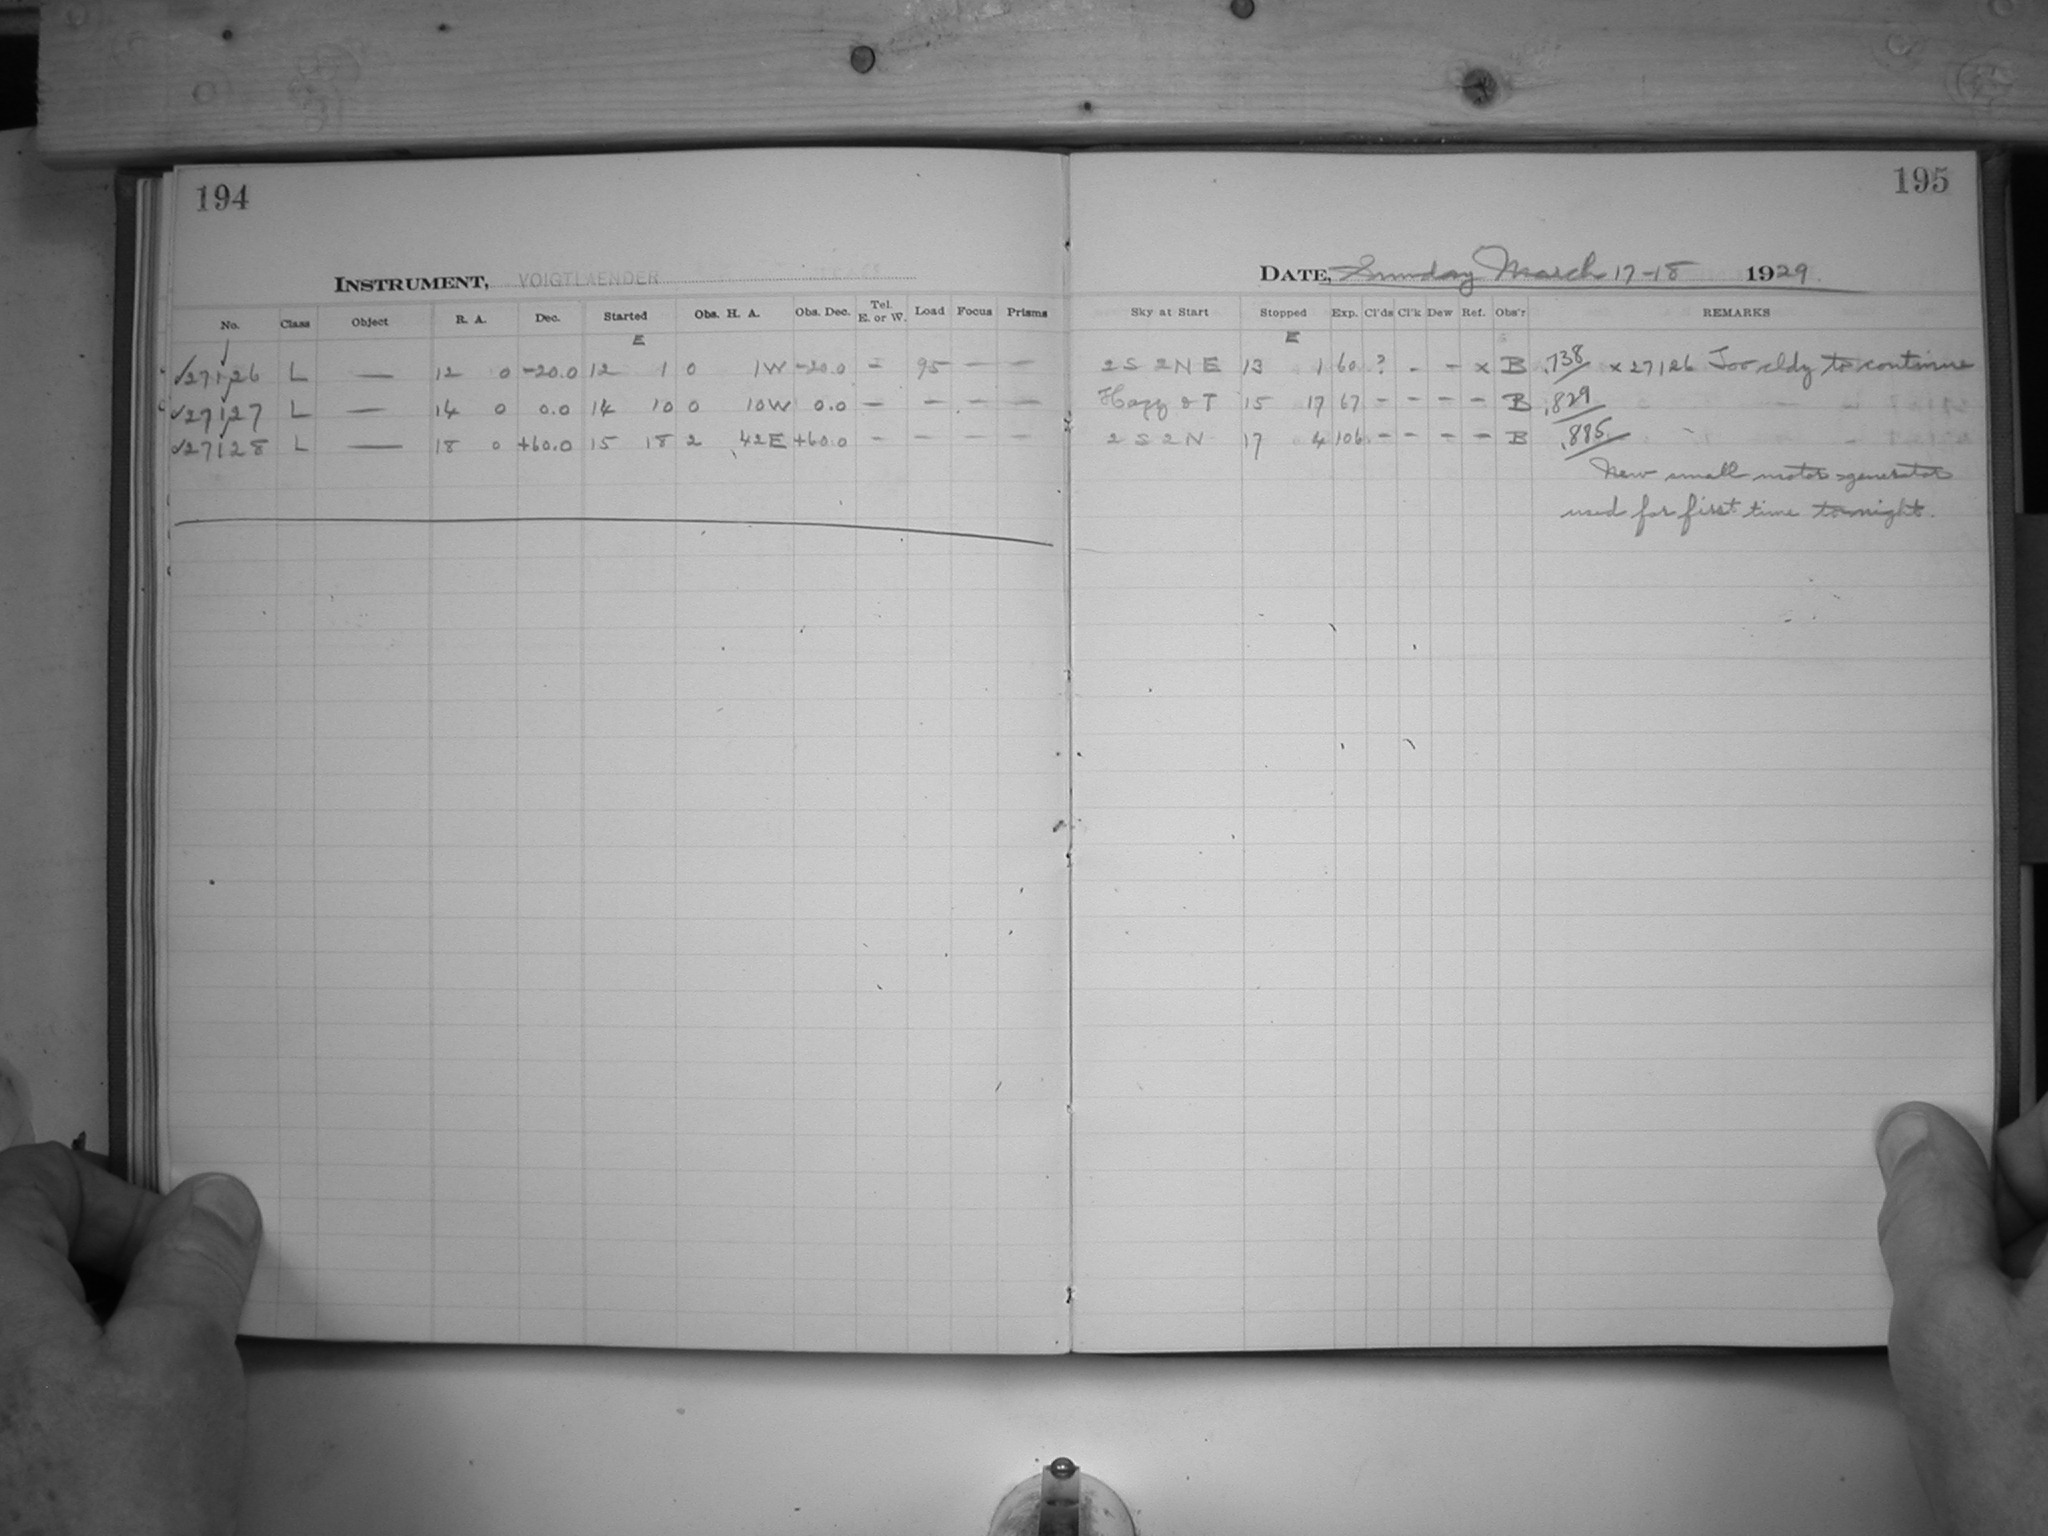 194
INSTRUMENT, VOIGTLAENDER
No. Class Object R. A. Dec. Started Obs. H. A. Obs. Dec. Tel. E. or W. Load Focus Prisms
E
√27126 L — 12 0 -20.0 12 1 0 1W -20.0 - 95 — —
√27127 L — 14 0 0.0 14 10 0 10W 0.0 — — — —
√27128 L — 18 0 +60.0 15 18 2 42E +60.0 - - - -
195
DATE, Sunday March 17-18 1929.
Sky at Start Stopped Exp. Cl'ds Cl'k Dew Ref. Obs'r REMARKS
E
2 S 2 N E 13 1 60 ? - - x B .738 x 27126 Too cldy to continue
Hazy & T 15 17 67 - - - - B .829
2 S 2 N 17 4 106 - - - - B .885
New small motor-generator
used for first time to-night.